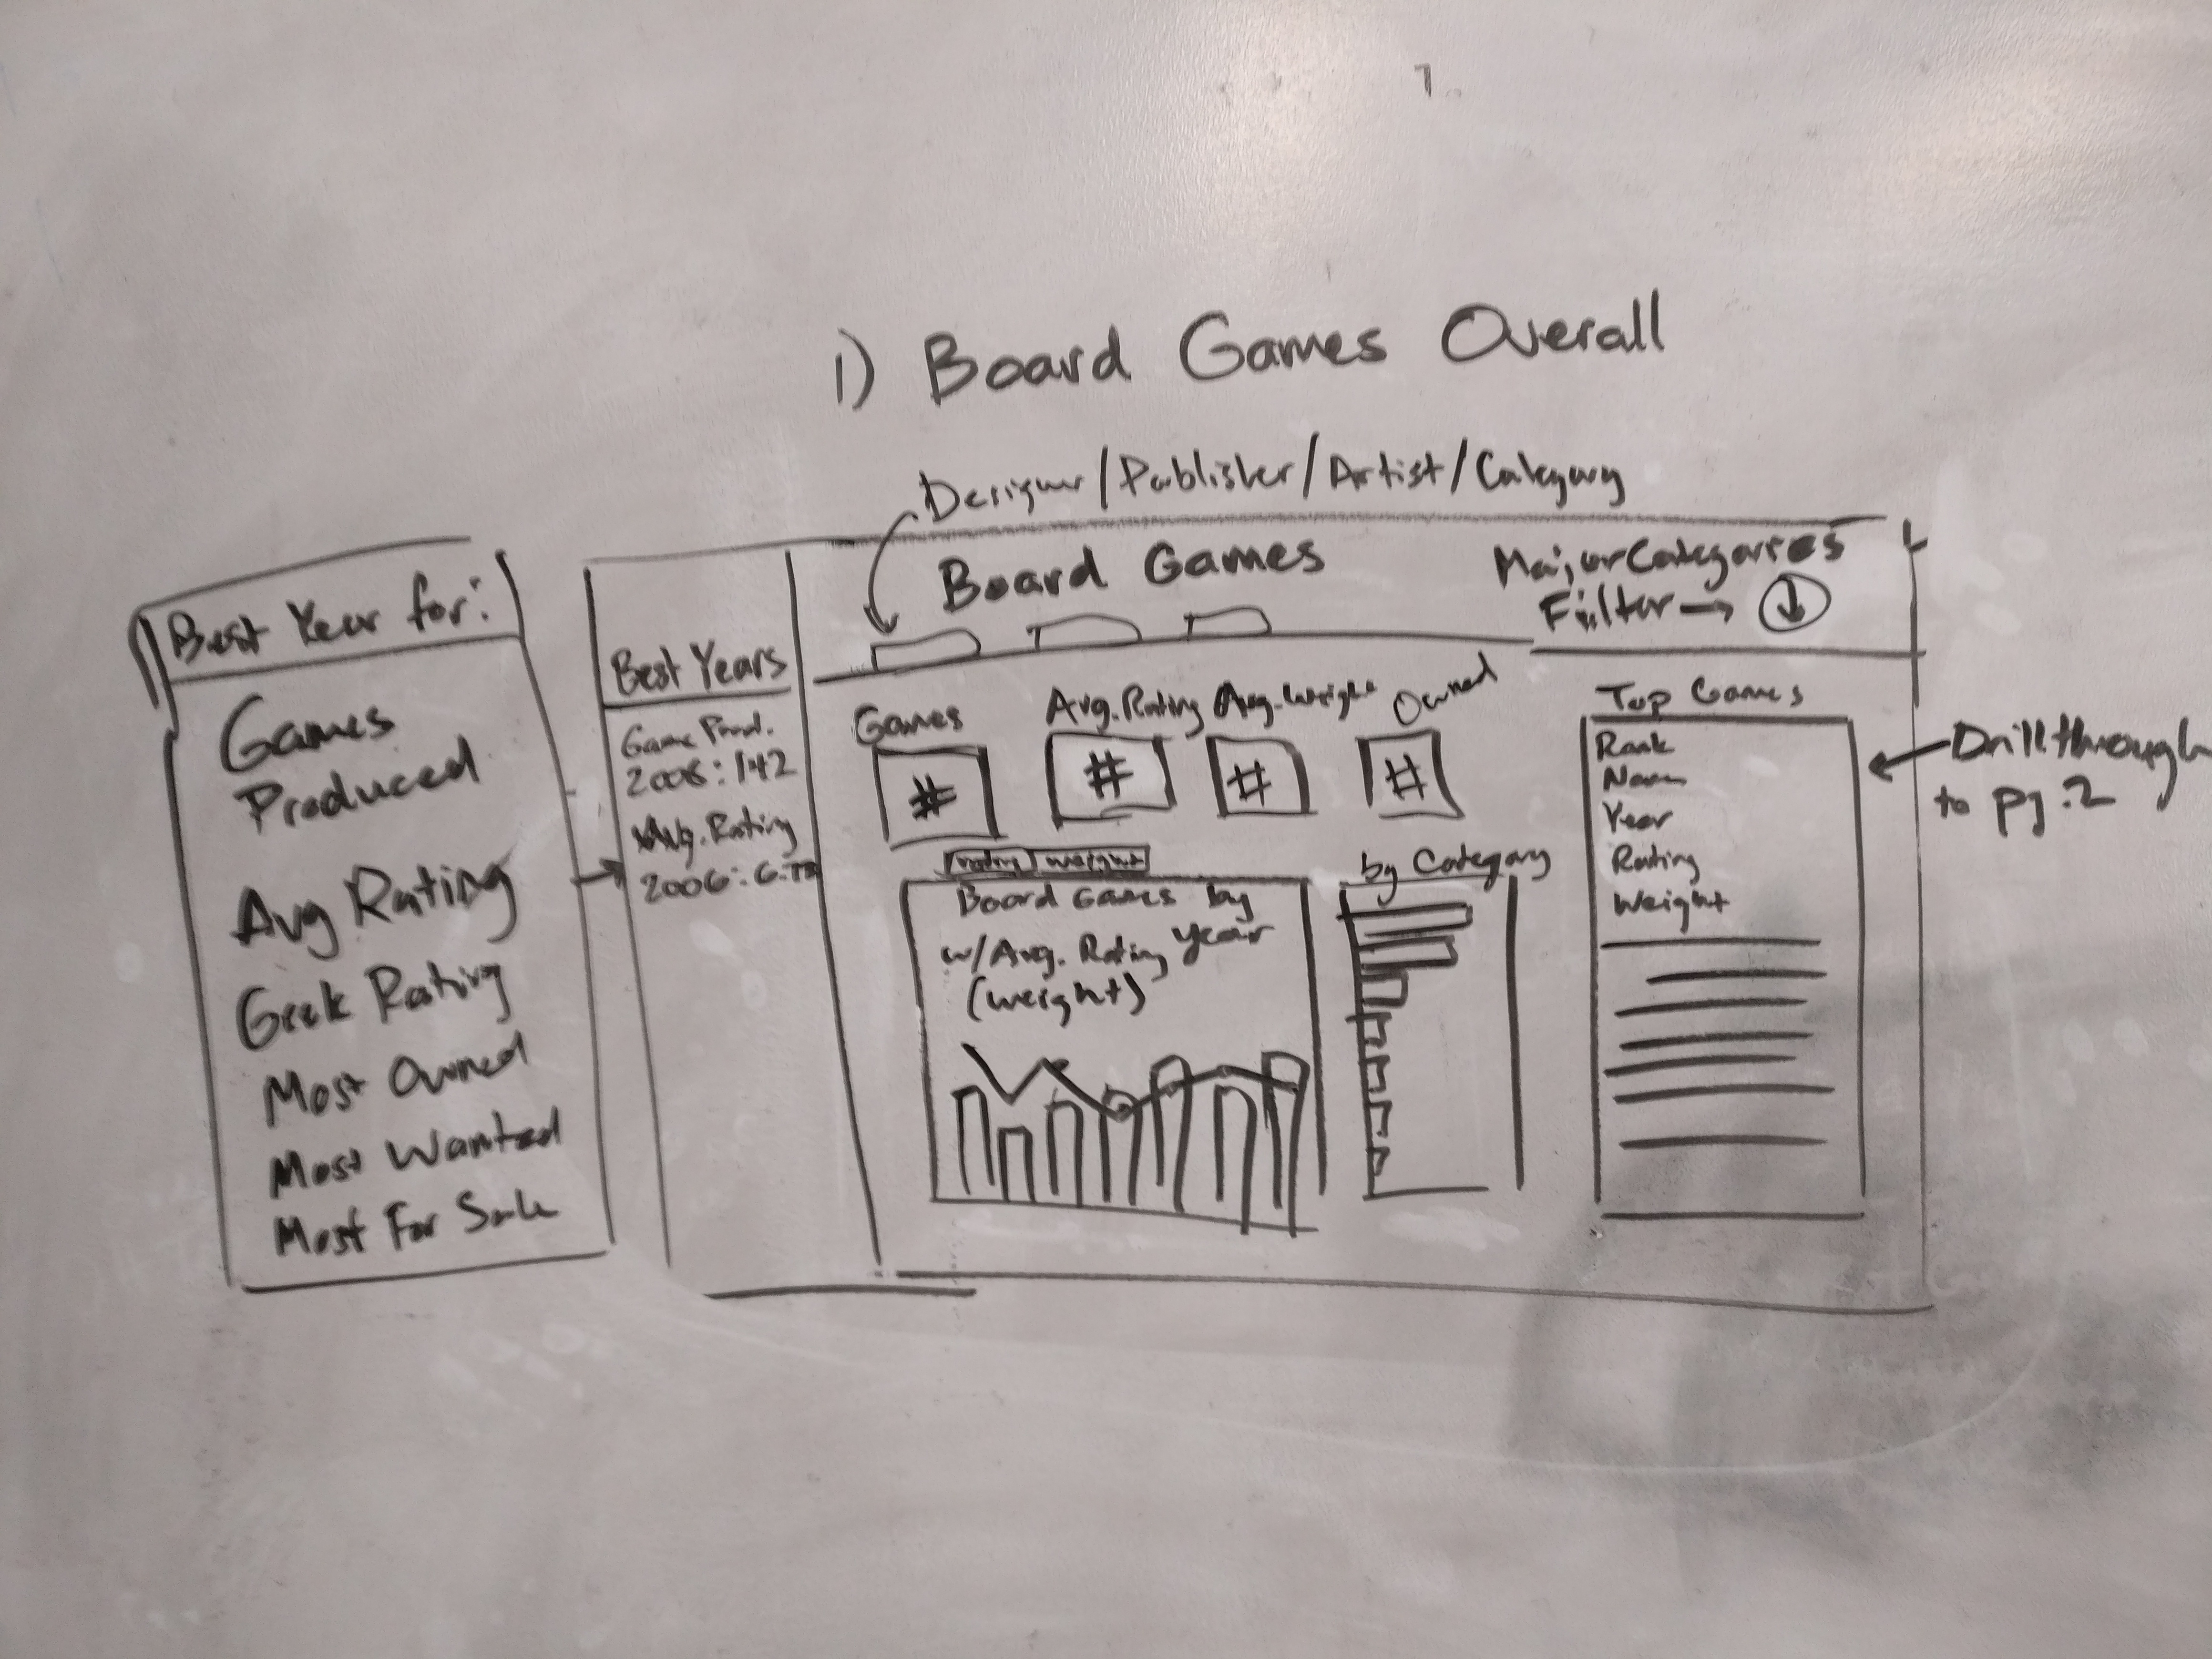 1) Board Games Overall
Designer/Publisher/Artist/Category
Best Year for:
Games
Produced
Avg Rating
Geek Rating
Most Owned
Most Wanted
Most For Sale
Best Years
Game Prod.
2006: 142
Avg. Rating
2006:
Board Games
Major Categories
Filter
Games
Avg. Rating
Avg. Weight
Owned
#
#
#
#
rating
weight
Board Games by
year
w/Avg. Rating
(weight)
by Category
Top Games
Rank
Name
Year
Rating
Weight
Drillthrough
to pg. 2